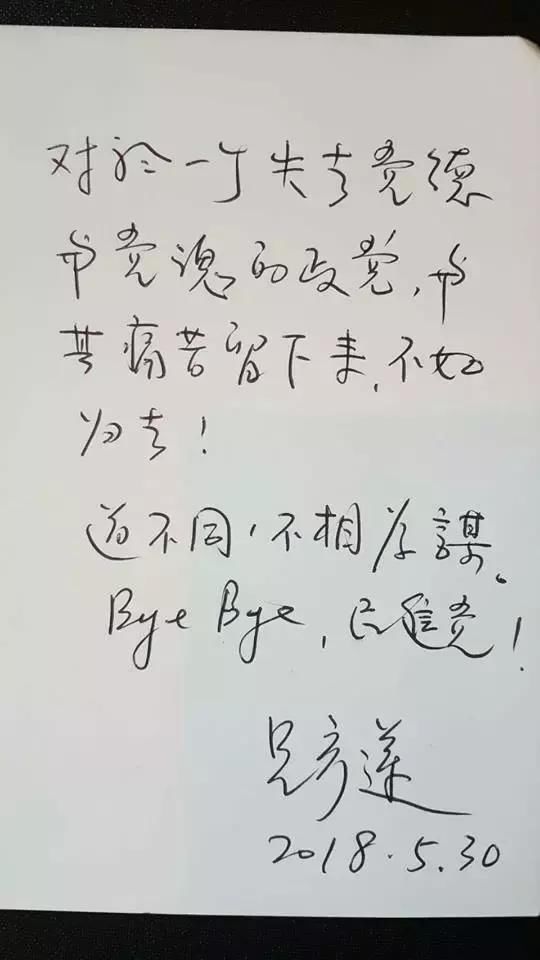 对於一个失去党德
与党魂的政党,与
其痛苦留下来,不如
归去!
道不同,不相为謀。
Bye Bye,民進党!
吕秀莲
2018.5.30